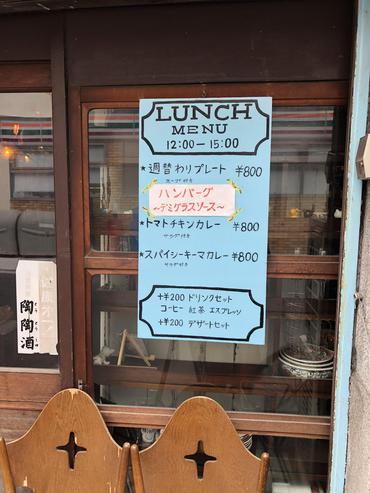 LUNCH
MENU
12:00 — 15:00
★週替わりプレート ¥800
スープ付き
ハンバーグ
〜デミグラスソース〜
★トマトチキンカレー ¥800
サラダ付き
★スパイシーキーマカレー ¥800
サラダ付き
+¥200 ドリンクセット
コーヒー 紅茶 エスプレッソ
+¥200 デザートセット
陶陶酒